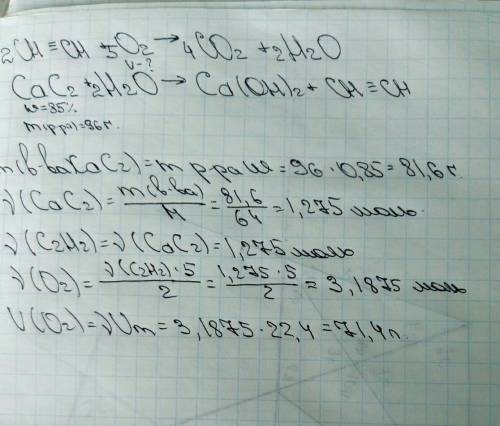 2CH≡CH + 5O2 → 4CO2 + 2H2O
V-?
CaC2 + 2H2O → Ca(OH)2 + CH≡CH
w=85%
m(р-ра)=96г.
m(в-ва CaC2) = m р-ра·w = 96 · 0,85 = 81,6 г.
ν(CaC2) = m(в-ва)/M = 81,6/64 = 1,275 моль.
ν(C2H2) = ν(CaC2) = 1,275 моль
ν(O2) = ν(C2H2)·5/2 = 1,275·5/2 = 3,1875 моль
V(O2) = νVm = 3,1875·22,4 = 71,4 л.